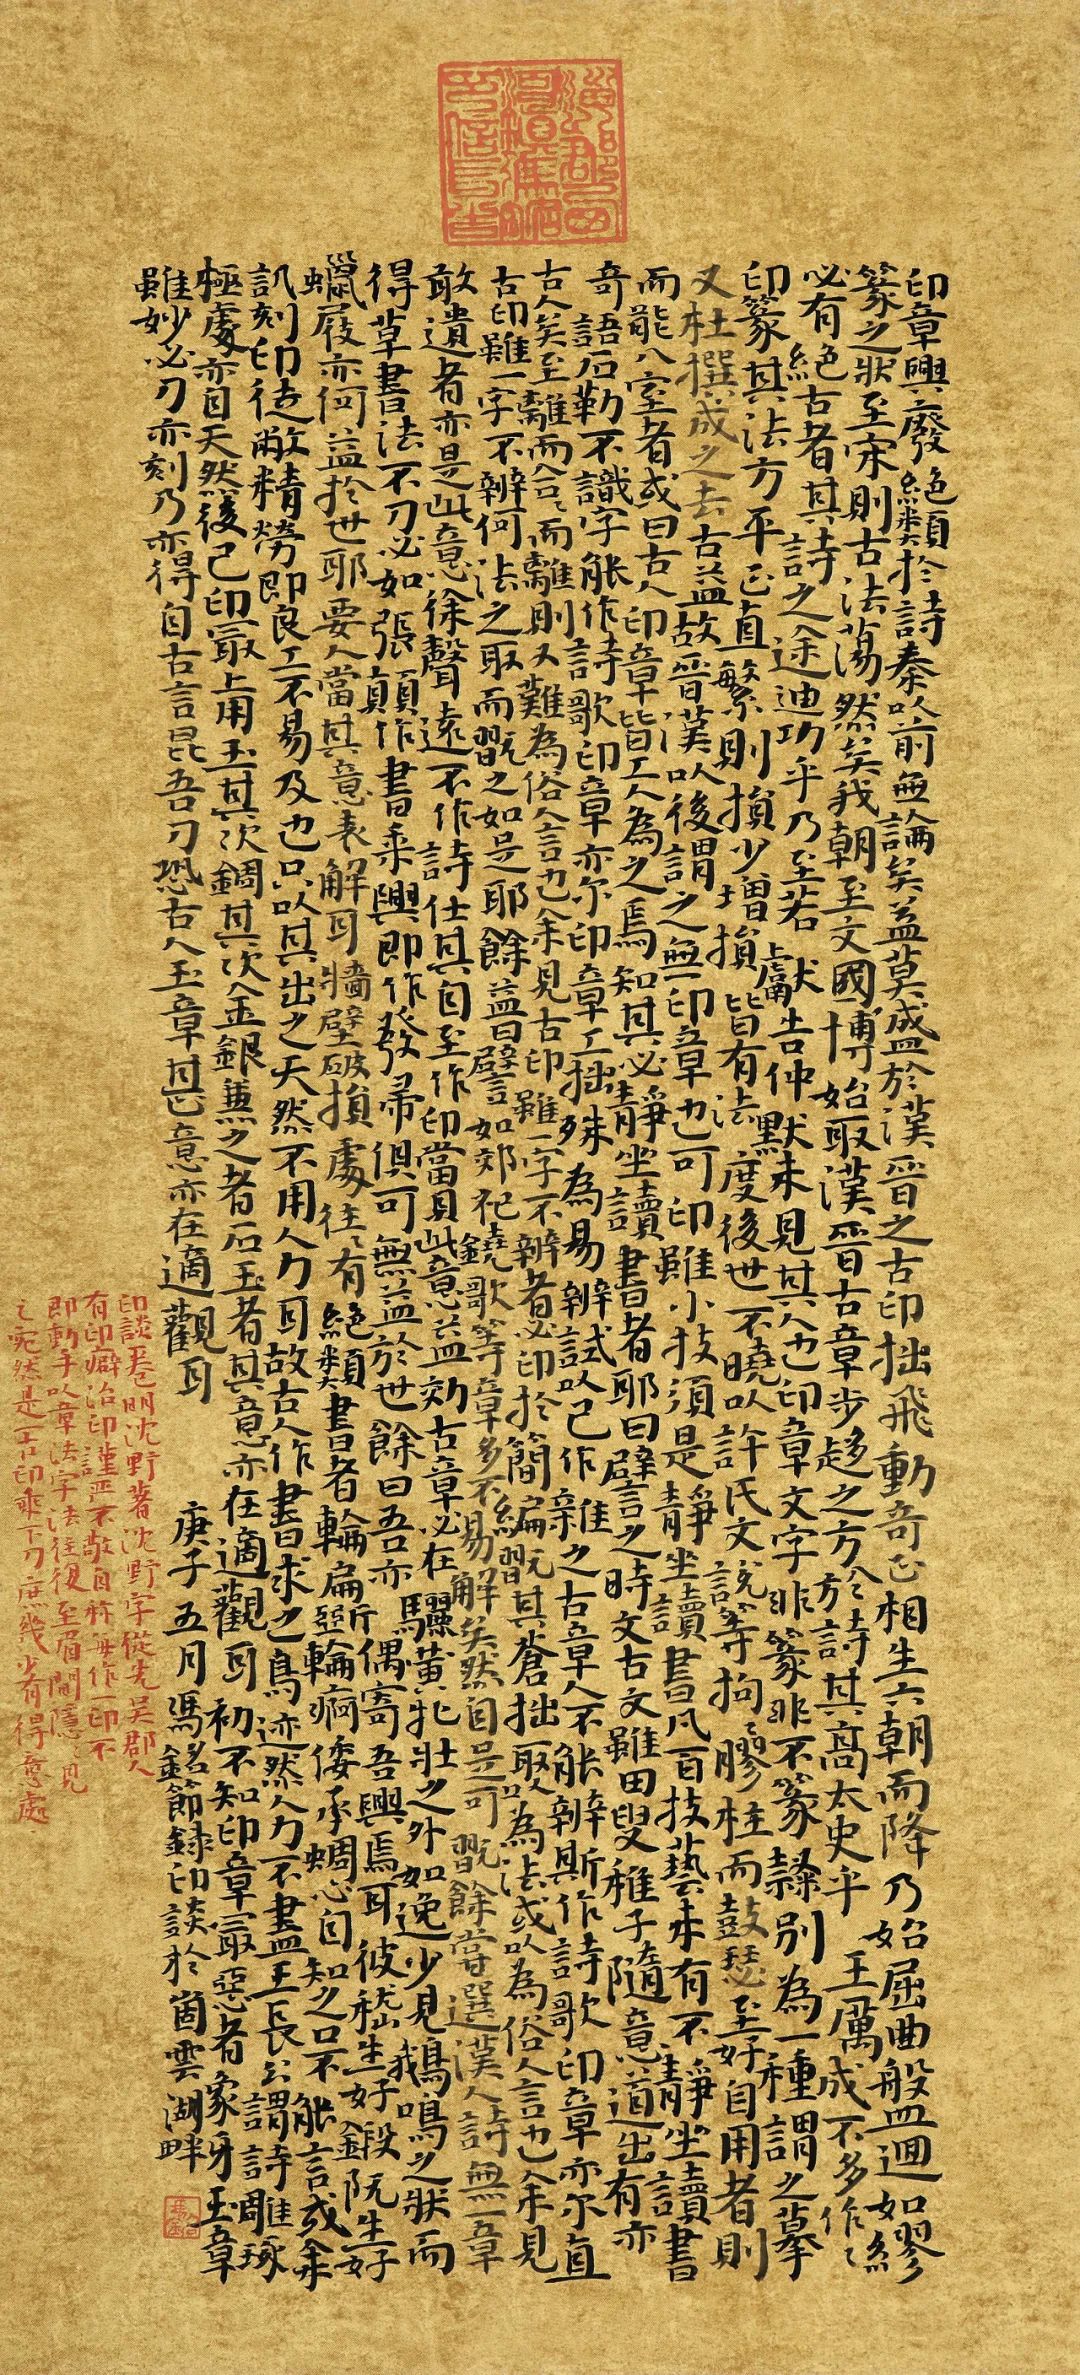 印章興廢絕類於詩秦以前無論矣益莫盛於漢晉之古印拙飛動奇正相生六朝而降乃始屈曲盤迴如繆
篆之狀至宋則古法蕩然矣我朝至文國博始取漢晉古章步趍之方於詩其高太史乎 王厲成不多作〻
必有絕古者其詩之途迪功乎乃至若獻吉仲默未見其人也印章文字非篆非不篆隸別為一種謂之摹
印篆其法方平正直繁則損少增損皆有法度後世不曉以許氏文說等拘〻膠柱而鼓瑟至好自用者則
又杜撰成之去古益故晉漢以後謂之無印章也可印雖小技須是靜坐讀書凡百技藝未有不靜坐讀書
而能入室者或曰古人印章皆工人為之焉知其必靜坐讀書者耶曰辟言之時文古文雖田叟稚子隨意道出有亦
奇語石勒不識字能作詩歌印章亦尔印章工拙殊為易辨試以己作雜之古章人不能辨斯作詩歌印章亦尔直
古人矣至離而合〻而離則又難為俗人言也余見古印雖一字不辨者必印於簡編翫其蒼拙取以為法或以為俗人言也余見
古印雖一字不辨何法之取而翫之如是耶餘益曰譬如郊祀鐃歌等章多不易解矣然自是可翫餘嘗選漢人詩無一章
敢遺者亦是此意徐聲遠不作詩仕其自至作印當具此意益効古章必在驪黃牝牡之外如逸少見鵝鳴之狀而
得草書法不刀必如張顛作書乘興即作發帚俱可無益於世餘曰吾亦偶寄吾興焉耳彼嵇生好鍛阮生好
蠟屐亦何益於世耶要人當其意表解耳牆壁破損處往〻有絕類書者輪扁斲輪痀僂承蜩心自知之口不能言或余
譏刻印徒敝精勞即良工不易及也只以其出之天然不用人力耳故古人作書曰求之鳥迹然人力不盡王長公謂詩雕琢
極處亦自天然後已印最上用玉其次銅其次金銀兼之者石玉者其意亦在適觀耳初不知印章最惡者象牙玉章
雖妙必刀亦刻乃亦得自古言昆吾刀恐古人玉章其正意亦在適觀耳 庚子五月馮銘節錄印談於箇雲湖畔
印談一卷明沈野著沈野字從先吳郡人
有印癖治印謹嚴不敢自矜每作一印不
即動手以章法字法往復至眉間隱〻見
之宛然是一古印乘下刀庶幾少有得意處